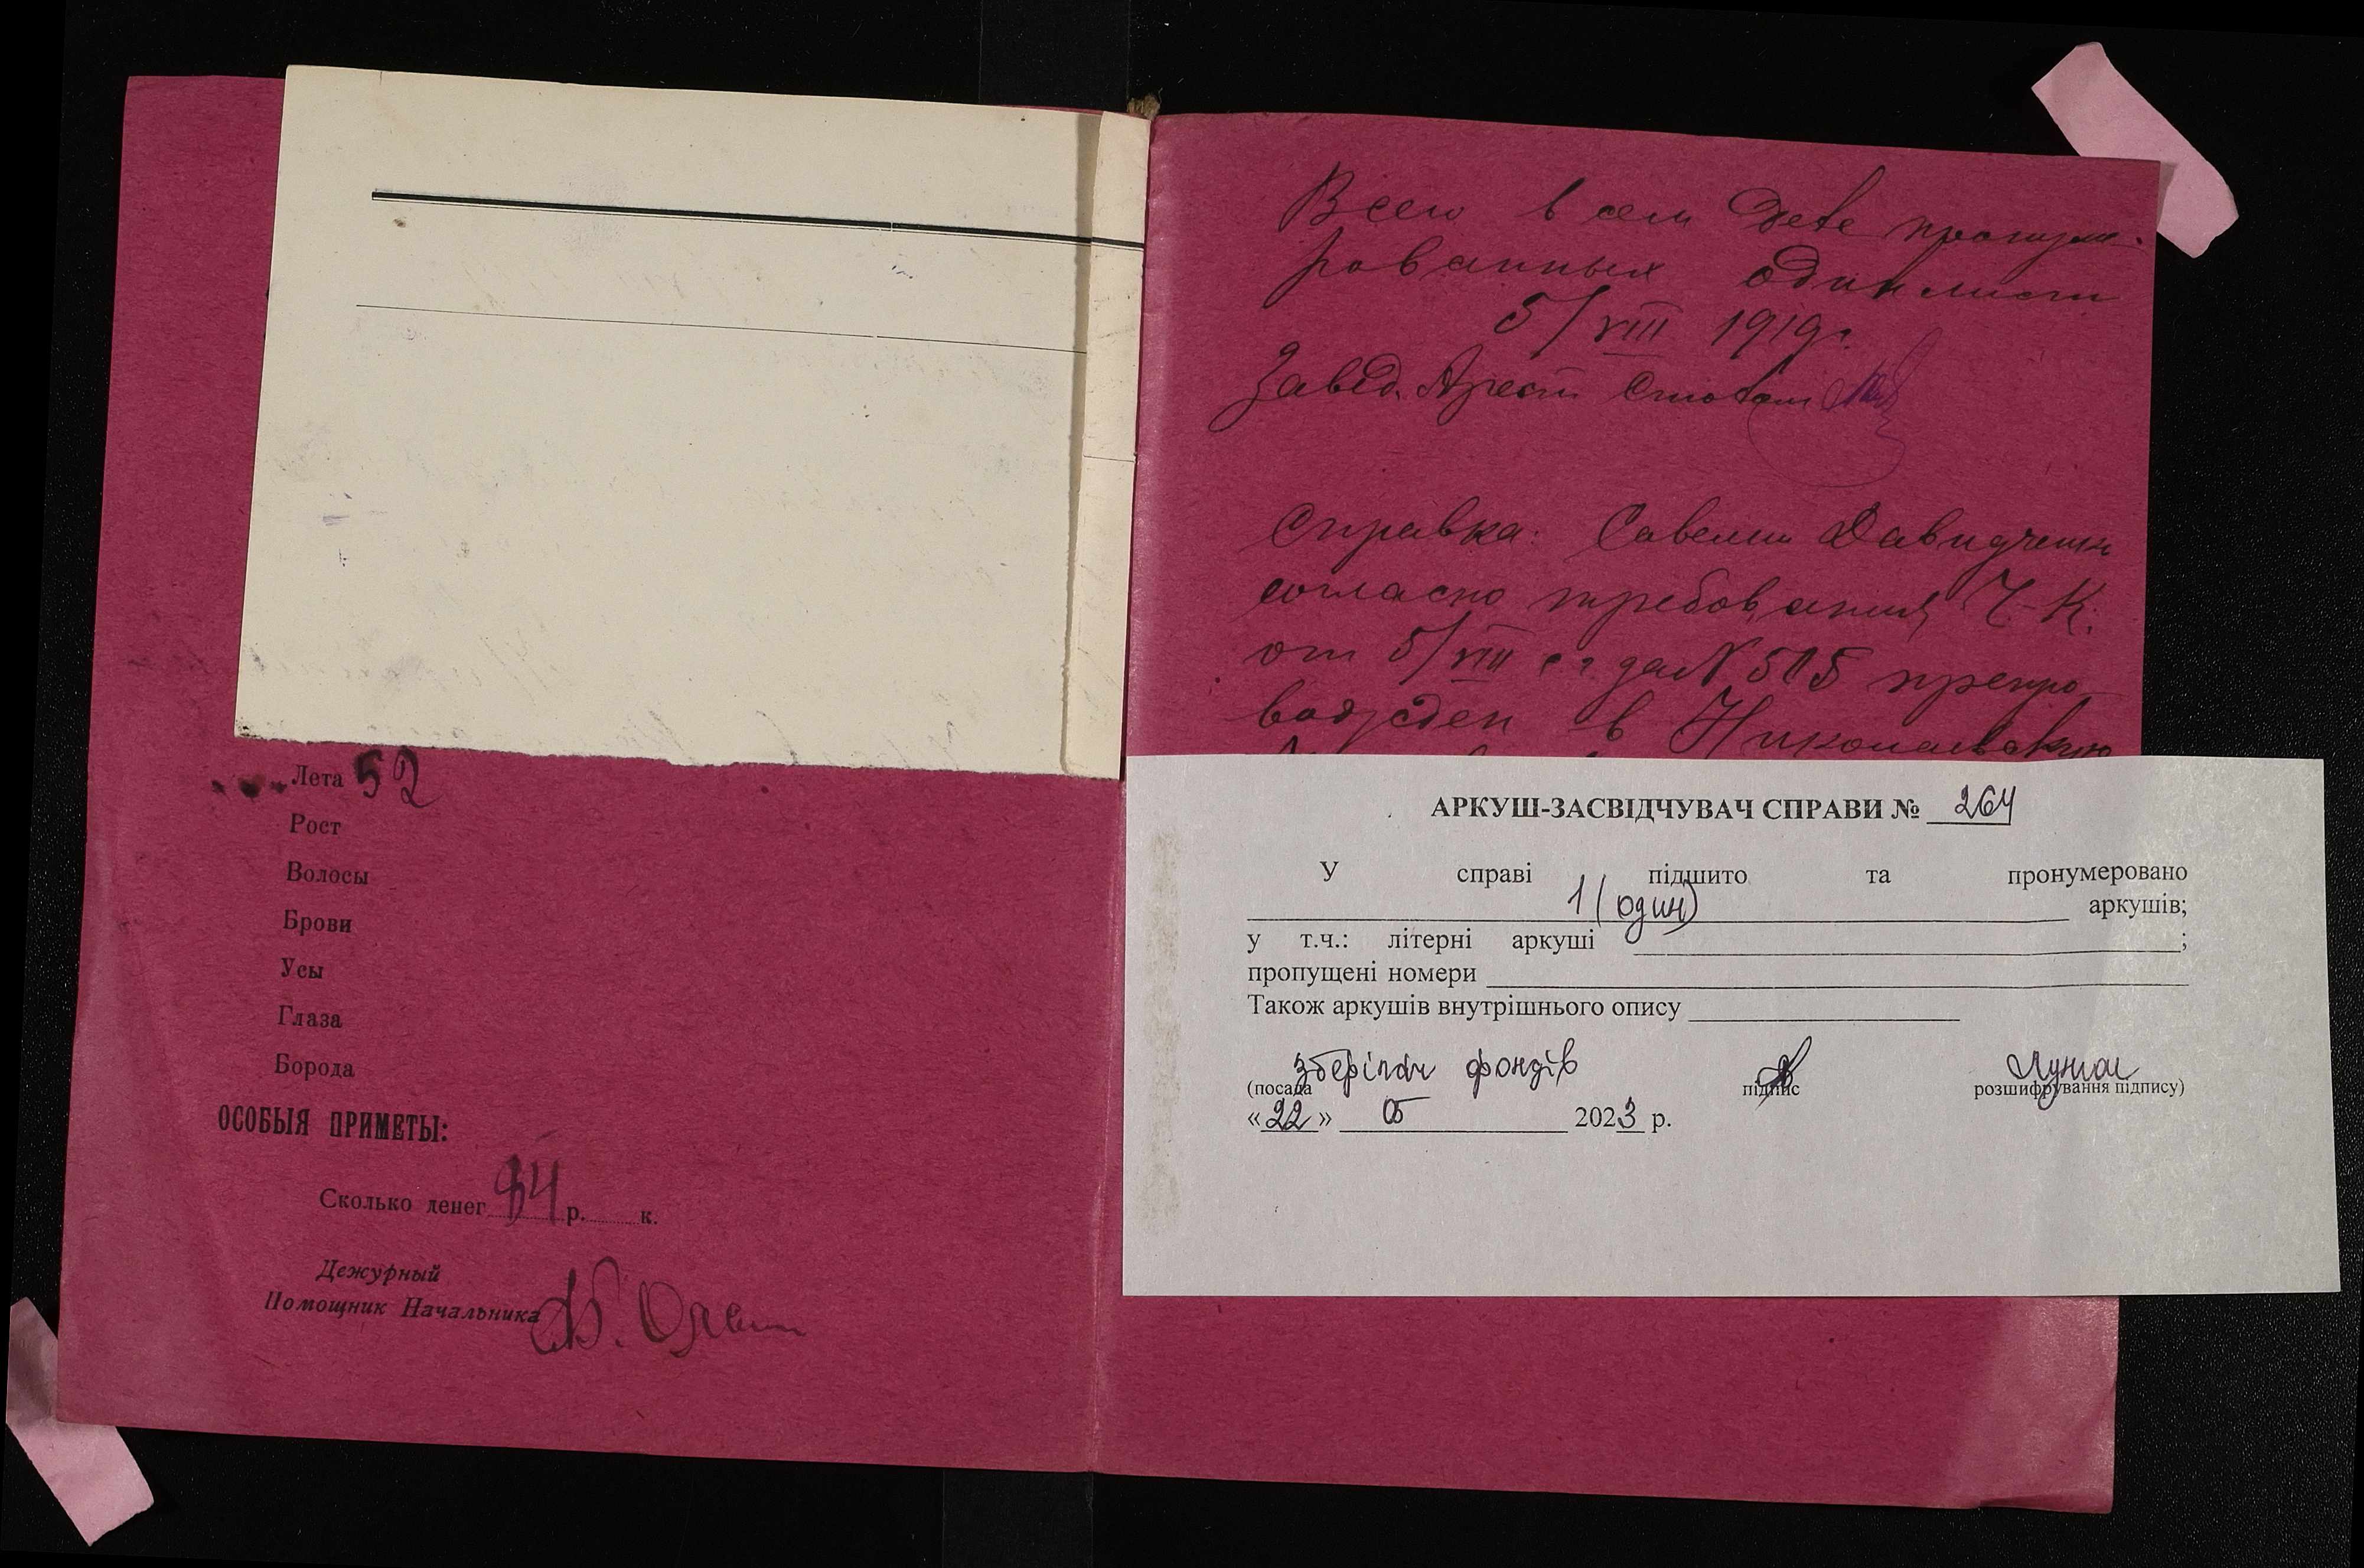 Лета 52
Рост
Волосы
Брови
Усы
Глаза
Борода
ОСОБЫЯ ПРИМЕТЫ:
Сколько денег 94 р. к.
Дежурный
Помощник Начальника
Всего в сем деле пронуме-
рованных один лист
5/VIII 1919 г.
Завед. Арест столом
Справка: Савелий Давидченко
согласно требования Ч-К.
от 5/VIII с г за № 515 препро
вожден в Николаевскую
АРКУШ-ЗАСВІДЧУВАЧ СПРАВИ № 264
У справі підшито та пронумеровано
1 (один) аркушів;
у т.ч.: літерні аркуші ;
пропущені номери
Також аркушів внутрішнього опису
Зберігач фондів
(посада підпис розшифрування підпису)
«22» 05 2023 р.